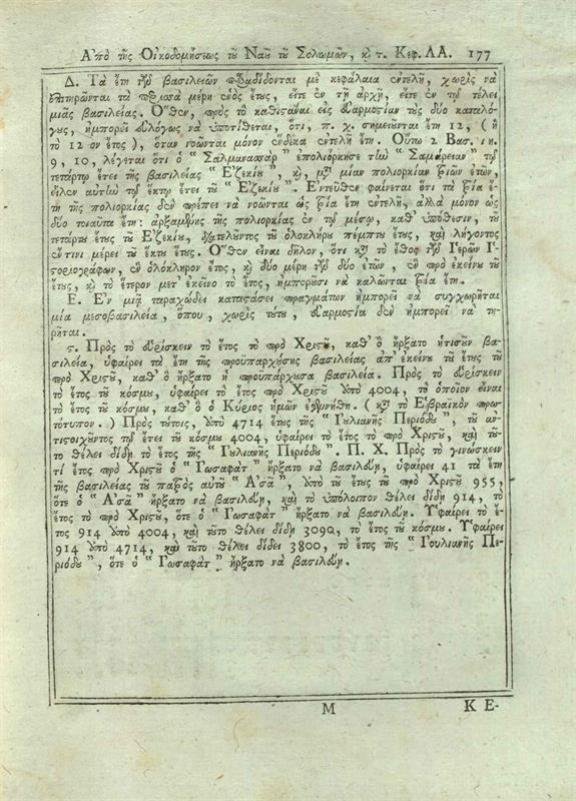 Ἀπὸ τῆς Οἰκοδομήσεως τοῦ Ναοῦ τοῦ Σολωμῶν, κ τ. Κεφ. ΛΑ. 177
Δ. Τὰ ἔτη τῶν βασιλειῶν παραδίδονται μὲ κεφάλαια ἐντελῆ, χωρὶς νὰ
ἐπιτηρῶνται τὰ περισσὰ μέρη ἑνὸς ἔτους, εἴτε ἐν τῇ ἀρχῇ, εἴτε ἐν τῷ τέλει
μιᾶς βασιλείας. Ὅθεν, πρὸς τὸ καθιστάναι εἰς ἐφαρμοστίαν τοὺς δύο καταλό-
γους, ἠμπορεῖ εὐλόγως νὰ ὑποτίθεται, ὅτι, π. χ. σημειοῦνται ἔτη 12, (ἢ
τὸ 12 ον ἔτος), ὅταν νοῶνται μόνον ἕνδεκα ἐντελῆ ἔτη. Οὕτω 2 Βασ. ιη.
9, 10, λέγεται ὅτι ὁ “Σαλμανασσὰρ” ἐπολιόρκησε τὴν “Σαμάρειαν” τῷ
τετάρτῳ ἔτει τῆς βασιλείας “Ἐζεκίου”, κ, μετὰ μίαν πολιορκίαν τριῶν ἐτῶν,
εἷλεν αὐτὴν τῷ ἕκτῳ ἔτει τοῦ “Ἐζεκίου”. Ἐντεῦθεν φαίνεται ὅτι τὰ τρία ἔ-
τη τῆς πολιορκίας δὲν πρέπει νὰ νοῶνται ὡς τρία ἔτη ἐντελῆ, ἀλλὰ μόνον ὡς
δύο τοιαῦτα ἔτη: ἀρξαμένης τῆς πολιορκίας ἐν τῷ μέσῳ, καθ' ὑπόθεσιν, τοῦ
τετάρτου ἔτους τοῦ Ἐζεκίου, διατελοῦντος τοῦ ὁλοκλήρου πέμπτου ἔτους, καὶ λήγοντος
ἔν τινι μέρει τοῦ ἕκτου ἔτους. Ὅθεν εἶναι δῆλον, ὅτι κατὰ τὸ ἔθος τῶν Ἱερῶν Ἱ-
στοριογράφων, ἓν ὁλόκληρον ἔτος, κ δύο μέρη τῶν δύο ἐτῶν, ἓν πρὸ ἐκείνου τοῦ
ἔτους, κ τὸ ἕτερον μετ' ἐκεῖνο τὸ ἔτος, ἠμποροῦσι νὰ καλῶνται τρία ἔτη.
Ε. Ἐν μιᾷ ταραχώδει καταστάσει πραγμάτων ἠμπορεῖ νὰ συγχωρῆται
μία μεσοβασιλεία, ὅπου, χωρὶς τούτου, ἐφαρμοστία δὲν ἠμπορεῖ νὰ τη-
ρῆται.
ϛ. Πρὸς τὸ εὑρίσκειν τὸ ἔτος τὸ πρὸ Χριστοῦ, καθ' ὃ ἤρξατο ἡτισοῦν βα-
σιλεία, ὑφαίρει τὰ ἔτη τῆς προϋπαρχούσης βασιλείας ἀπ' ἐκείνου τοῦ ἔτους τοῦ
πρὸ Χριστοῦ, καθ' ὃ ἤρξατο ἡ προϋπάρχουσα βασιλεία. Πρὸς τὸ εὑρίσκειν
τὸ ἔτος τοῦ κόσμου, ὑφαίρει τὸ ἔτος πρὸ Χριστοῦ ἀπὸ 4004, τὸ ὁποῖον εἶναι
τὸ ἔτος τοῦ κόσμου, καθ' ὃ ὁ Κύριος ἡμῶν ἐγεννήθη. (κατὰ τὸ Ἑβραϊκὸν πρω-
τότυπον.) Πρὸς τούτοις, ἀπὸ 4714 ἔτους τῆς “Ἰουλιανῆς Περιόδου”, τοῦ ἀν-
τιστοιχοῦντος τῷ ἔτει τοῦ κόσμου 4004, ὑφαίρει τὸ ἔτος τὸ πρὸ Χριστοῦ, καὶ τοῦ-
το θέλει δίδῃ τὸ ἔτος τῆς “Ἰουλιανῆς Περιόδου”. Π. Χ. Πρὸς τὸ γινώσκειν
τί ἔτος πρὸ Χριστοῦ ὁ “Ἰωσαφὰτ” ἤρξατο νὰ βασιλεύῃ, ὑφαίρει 41 τὰ ἔτη
τῆς βασιλείας τοῦ πατρὸς αὐτοῦ “Ἀσᾶ”, ἀπὸ τοῦ ἔτους τοῦ πρὸ Χριστοῦ 955,
ὅτε ὁ “Ἀσᾶ” ἤρξατο νὰ βασιλεύῃ, καὶ τὸ ὑπόλοιπον θέλει δίδῃ 914, τὸ
ἔτος τὸ πρὸ Χριστοῦ, ὅτε ὁ “Ἰωσαφὰτ” ἤρξατο νὰ βασιλεύῃ. Ὑφαίρει τὸ ἔ-
τος 914 ἀπὸ 4004, καὶ τοῦτο θέλει δίδῃ 3090, τὸ ἔτος τοῦ κόσμου. Ὑφαίρει
914 ἀπὸ 4714, καὶ τοῦτο θέλει δίδει 3800, τὸ ἔτος τῆς “Ἰουλιανῆς Πε-
ριόδου”, ὅτε ὁ “Ἰωσαφὰτ” ἤρξατο νὰ βασιλεύῃ.
Μ ΚΕ-